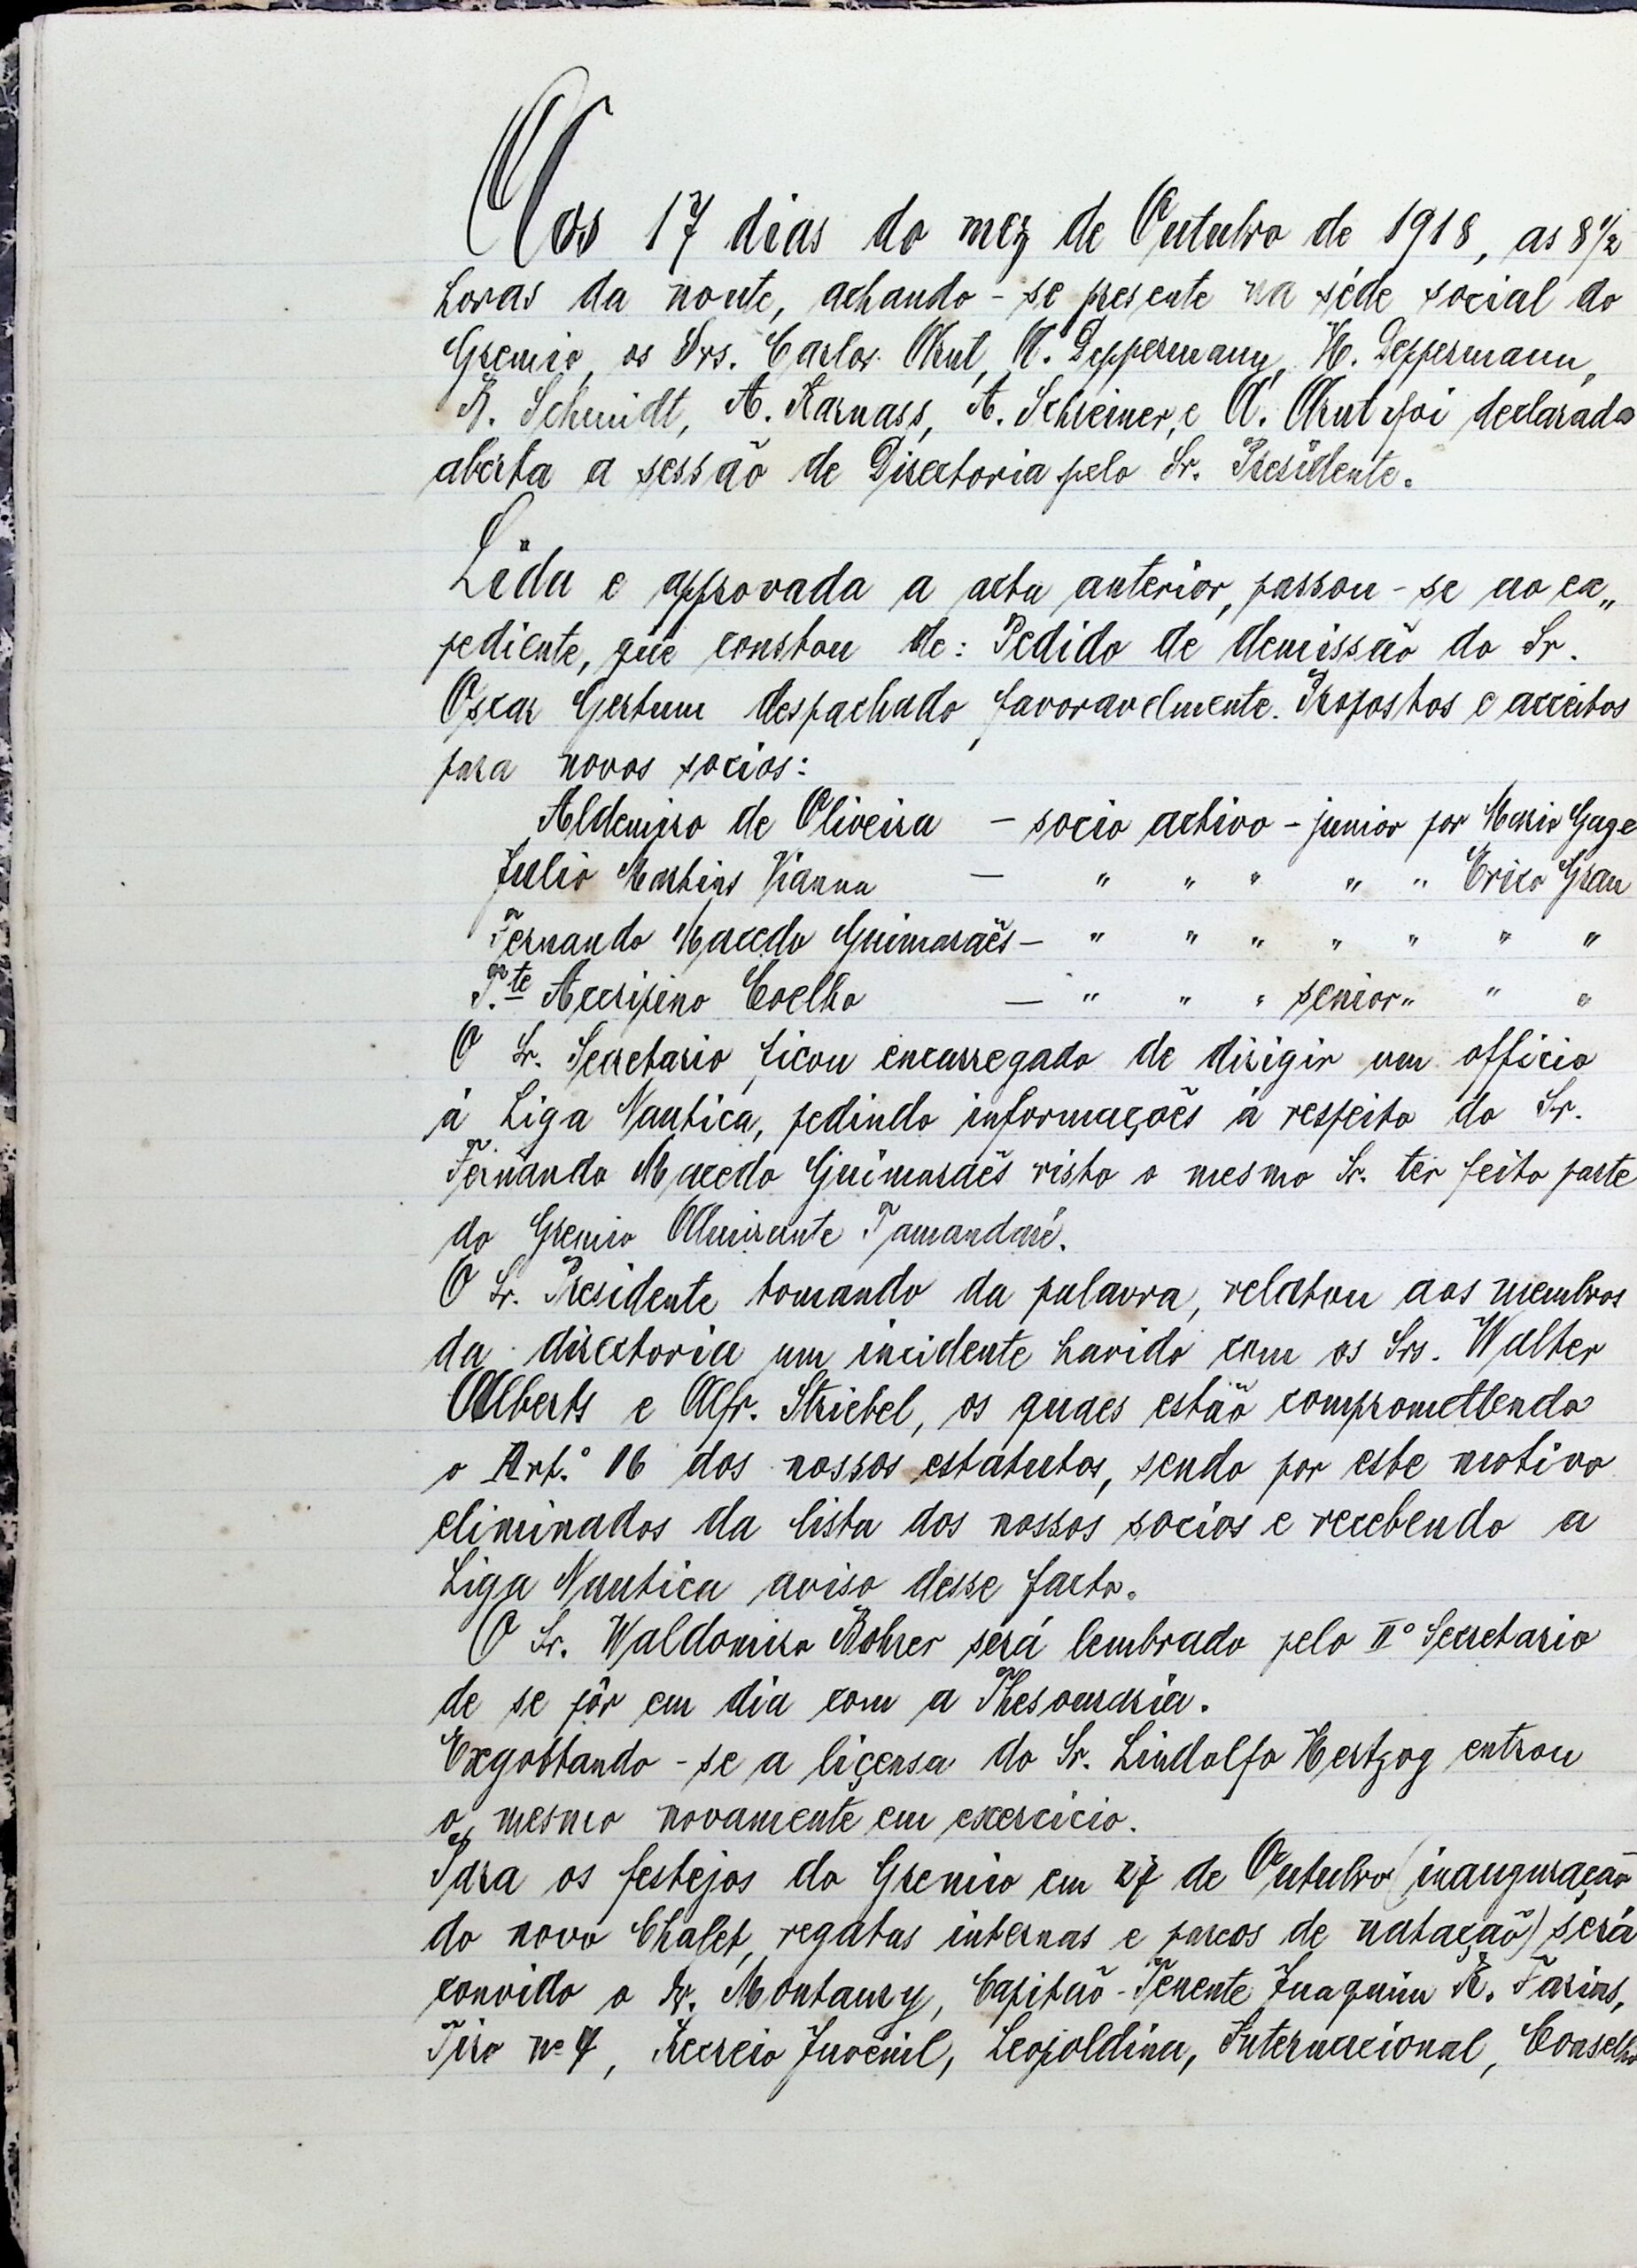 Aos 17 dias do mez de Outubro de 1918, as 8 1/2
horas da noute, achando-se presente na séde social do
Gremio, os Srs. Carlos Arnt, A. Deppermann, H. Deppermann,
R. Schmidt, A. Karnass, A. Schreiner, e A. Arnt foi declarada
aberta a sessão de Directoria pelo Sr. Presidente.
Lida e approvada a acta anterior, passou-se ao ex„
pediente, que constou de: Pedido de demissão do Sr.
Oscar Gertum despachado favoravelmente. Propostos e acceitos
para novos socios:
Aldemiro de Oliveira — socio activo - junior por Mario Gage
Julio Martins Vianna — " " " " " Erico Grau
Fernando Macedo Guimaraẽs — " " " " " " "
T.te Accripino Coelho — " " " senior " " "
O Sr. Secretario ficou encarregado de dirigir um officio
á Liga Nautica, pedindo informaçoẽs á respeito do Sr.
Fernando Macedo Guimaraẽs visto o mesmo Sr. ter feito parte
do Gremio Almirante Tamandaré.
O Sr. Presidente tomando da palavra, relatou aos membros
da directoria um incidente havido com os Srs. Walter
Alberts e Alfr. Striebel, os quaes estão compromettendo
o Art.º 16 dos nossos estatutos, sendo por este motivo
eliminados da lista dos nossos socios e recebendo a
Liga Nautica aviso desse facto.
O Sr. Waldomiro Bohrer será lembrado pelo IIº Secretario
de se pôr em dia com a Thesouraria.
Exgottando-se a liçensa do Sr. Lindolfo Hertzog entrou
o mesmo novamente em exercicio.
Para os festejos do Gremio em 27 de Outubro (inauguração
do novo Chalet, regatas internas e pareos de natação) será
convido o Dr. Montaury, Capitão-Tenente Juaquim R. Farias,
Tiro nº 4, Recreio Juvenil, Leopoldina, Internacional, Conselho